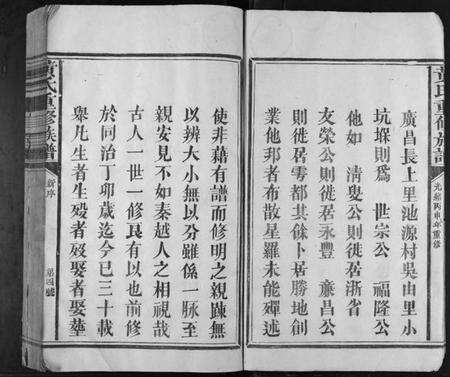 黃氏重修族譜
光緒丙申年重修
廣昌長上里池源村吳由里小
坑堢則爲 世宗公 福隆公
他如 清叟公則徙居浙省
友榮公則徙居永豐 亷昌公
則徙居雩都其餘卜居勝地創
業他邦者布散星羅未能殫述
使非藉有譜而修明之親踈無
以辨大小無以分雖係一脉至
親安見不如秦越人之相視哉
古人一世一修良有以也前修
於同治丁卯歲迄今已三十載
舉凡生者生殁者殁娶者娶葬
黃氏重修族譜
新序
第四號